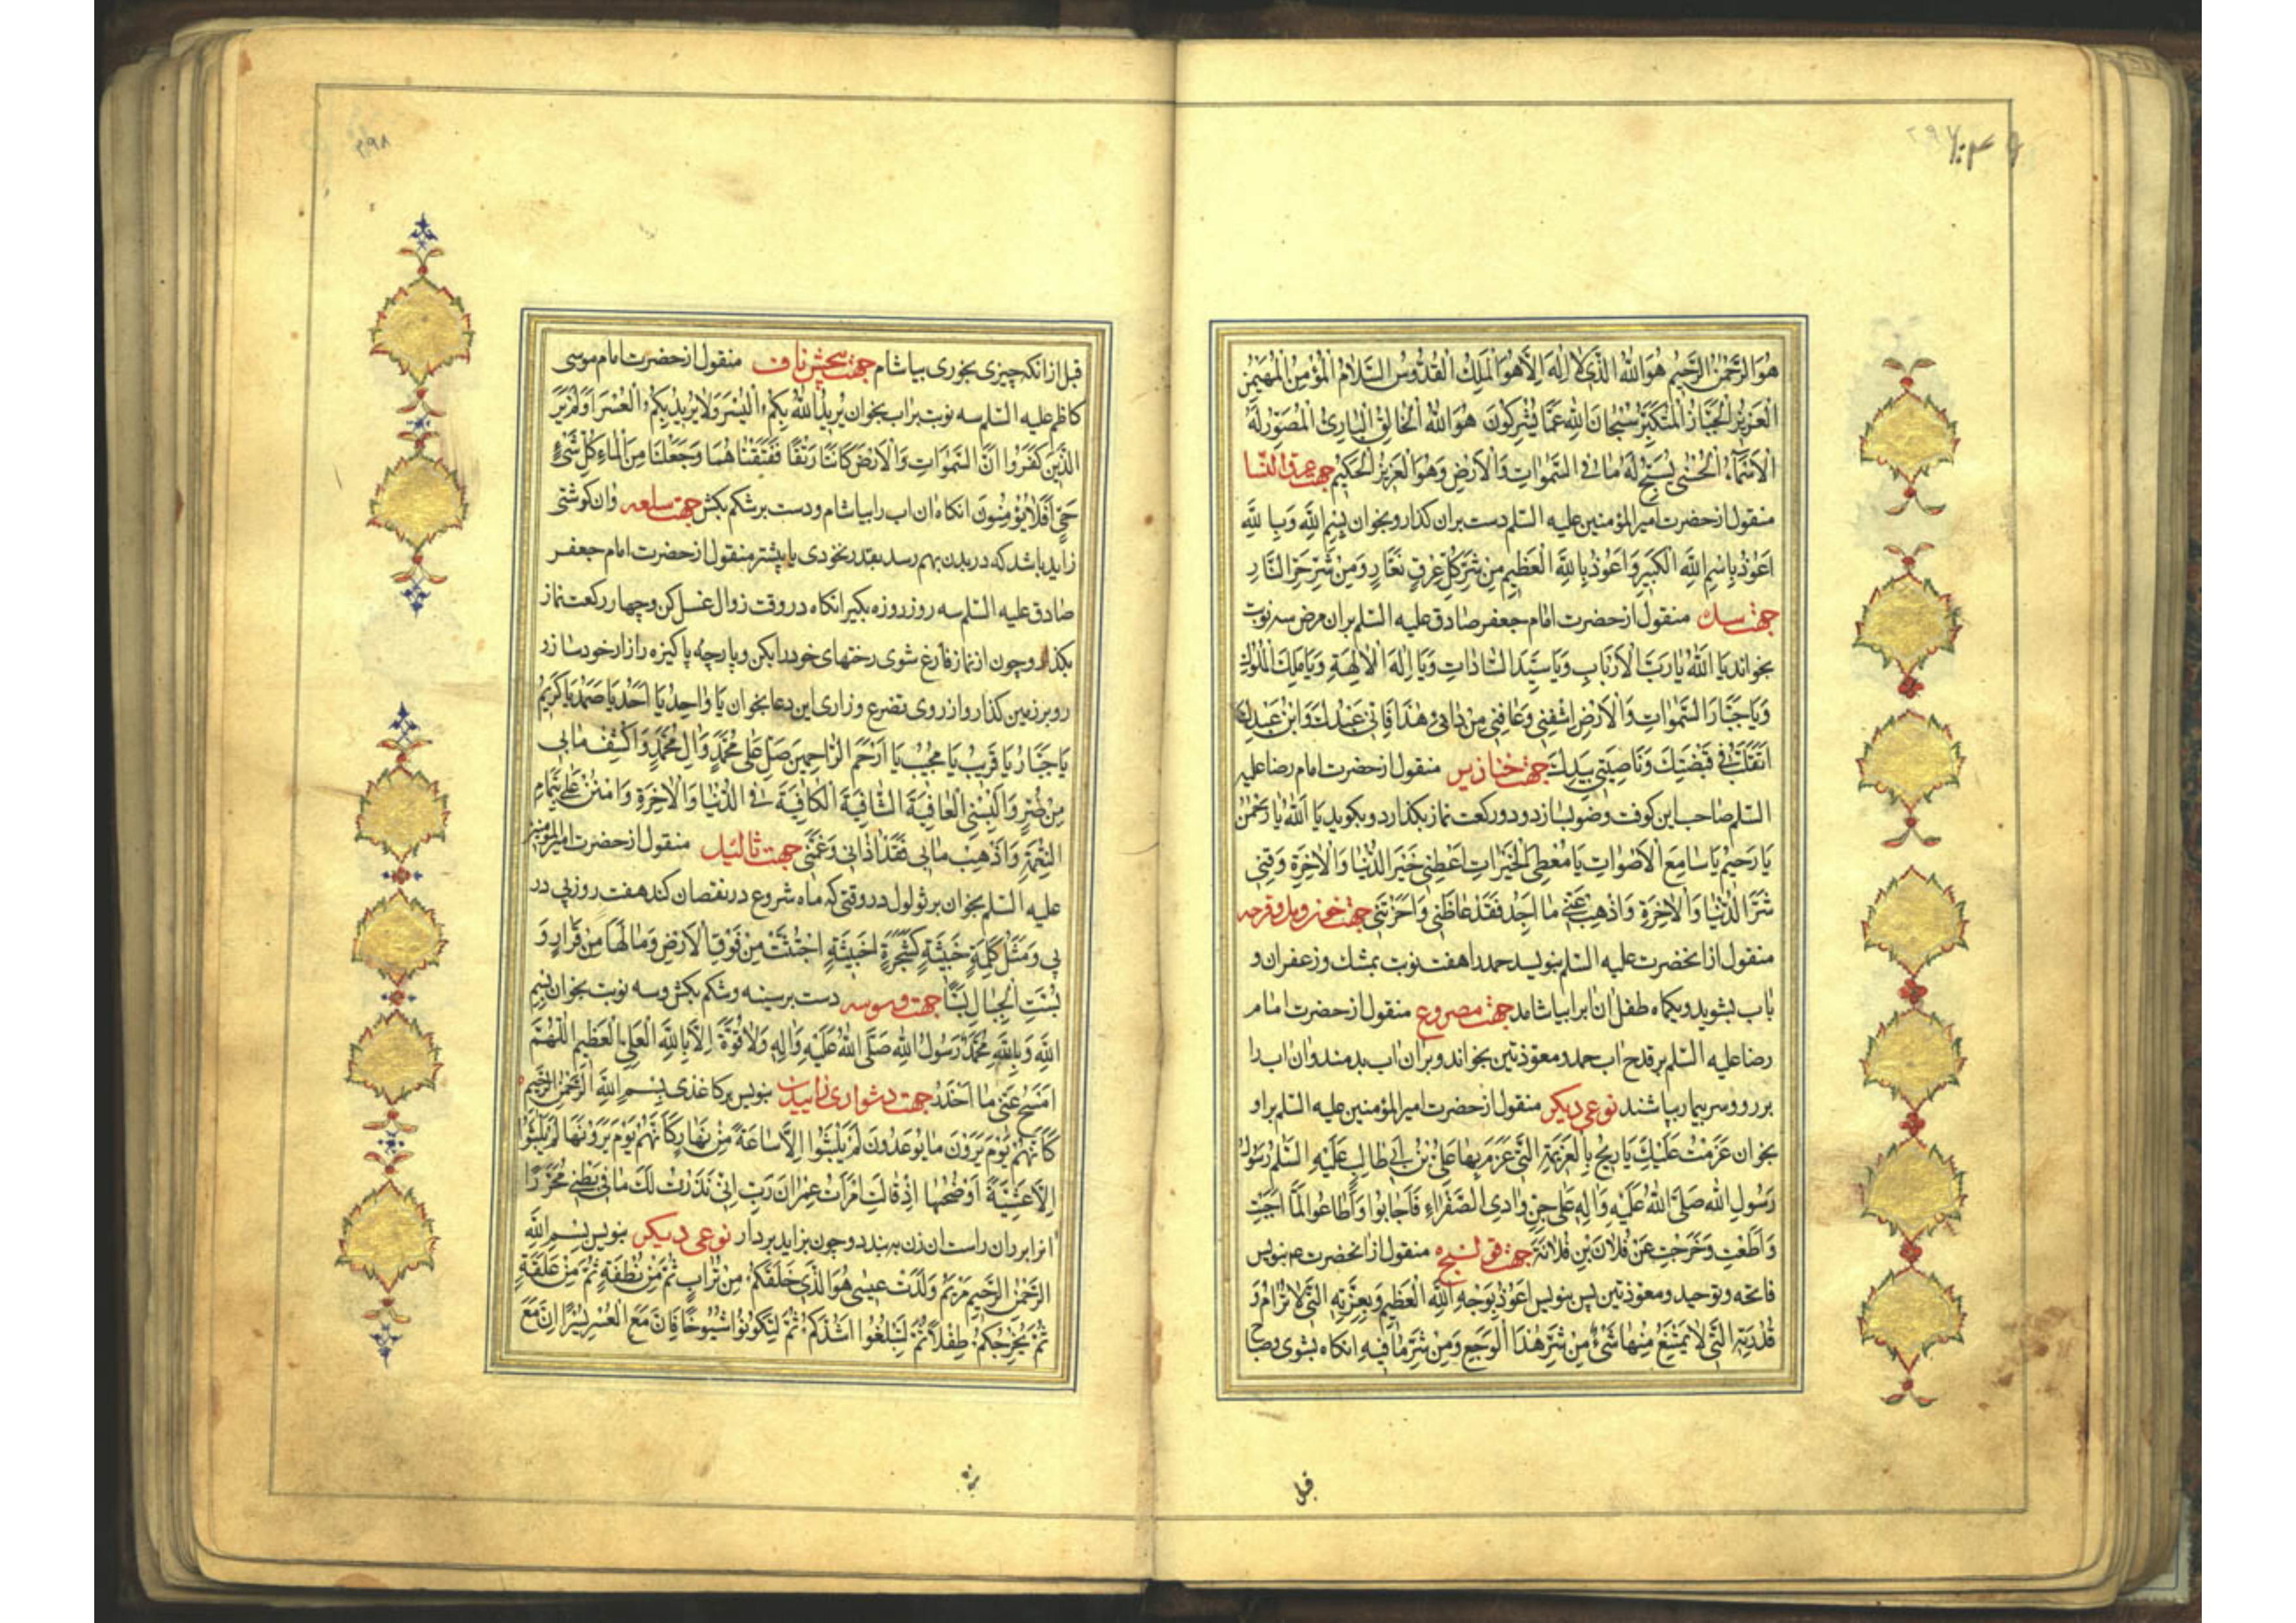 هُوَ الرَّحْمٰنُ الرَّحِيمُ هُوَ اللّٰهُ الَّذِي لَا إِلٰهَ إِلَّا هُوَ الْمَلِكُ الْقُدُّوسُ السَّلَامُ الْمُؤْمِنُ الْمُهَيْمِنُ
الْعَزِيزُ الْجَبَّارُ الْمُتَكَبِّرُ سُبْحَانَ اللّٰهِ عَمَّا يُشْرِكُونَ هُوَ اللّٰهُ الْخَالِقُ الْبَارِئُ الْمُصَوِّرُ لَهُ
الْأَسْمَاءُ الْحُسْنٰى يُسَبِّحُ لَهُ مَا فِي السَّمٰوَاتِ وَالْأَرْضِ وَهُوَ الْعَزِيزُ الْحَكِيمُ جهت عرق النسا
منقول از حضرت امیر المؤمنین علیه السّلم دست بران کذار و بخوان بِسْمِ اللّٰهِ وَبِاللّٰهِ
اَعُوذُ بِاسْمِ اللّٰهِ الْكَبِيرِ وَاَعُوذُ بِاللّٰهِ الْعَظِيمِ مِنْ شَرِّ كُلِّ عِرْقٍ نَعَّارٍ وَمِنْ شَرِّ حَرِّ النَّارِ
جهت سل منقول از حضرت امام جعفر صادق علیه السّلم بران مرض سه نوبت
بخواند يَا اَللّٰهُ يَا رَبَّ الْاَرْبَابِ وَيَا سَيِّدَ السَّادَاتِ وَيَا اِلٰهَ الْاٰلِهَةِ وَيَا مَلِكَ الْمُلُوكِ
وَيَا جَبَّارَ السَّمٰوَاتِ وَالْاَرْضِ اشْفِنِي وَعَافِنِي مِنْ دَائِي هٰذَا فَاِنِّي عَبْدُكَ وَابْنُ عَبْدِكَ
اَتَقَلَّبُ فِي قَبْضَتِكَ وَنَاصِيَتِي بِيَدِكَ جهت خنازیر منقول از حضرت امام رضا علیه
السّلم صاحب این کوفت وضو بسازد و دو رکعت نماز بکذارد و بکوید يَا اَللّٰهُ يَا رَحْمٰنُ
يَا رَحِيمُ يَا سَامِعَ الْاَصْوَاتِ يَا مُعْطِيَ الْخَيْرَاتِ اَعْطِنِي خَيْرَ الدُّنْيَا وَالْاٰخِرَةِ وَقِنِي
شَرَّ الدُّنْيَا وَالْاٰخِرَةِ وَاَذْهِبْ عَنِّي مَا اَجِدُ فَقَدْ غَاظَنِي وَاَحْزَنَنِي جهت
منقول از انحضرت علیه السّلم بنویسد حمد را هفت نوبت بمشك و زعفران و
باب بشوید و یکماه طفل ان ابرا بیاشامد جهت مصروع منقول از حضرت امام
رضا علیه السّلم بر قدح اب حمد و معوّذتین بخواند و بر ان اب بدمند و ان اب را
بر رو و سر بیمار بپاشند نوعی دیکر منقول از حضرت امیر المؤمنین علیه السّلم بر او
بخوان عَزَمْتُ عَلَيْكَ يَا رِيحُ بِالْعَزِيمَةِ الَّتِي عَزَمَ بِهَا عَلِيُّ بْنُ اَبِي طَالِبٍ عَلَيْهِ السَّلَمُ رَسُولُ
رَسُولِ اللّٰهِ صَلَّى اللّٰهُ عَلَيْهِ وَاٰلِهِ عَلٰى جِنِّ وَادِي الصَّفْرَاءِ فَاَجَابُوا وَاَطَاعُوا لَمَّا اَجَبْتِ
وَاَطَعْتِ وَخَرَجْتِ عَنْ فُلَانَ بْنِ فُلَانَةَ جهت قولنج منقول از انحضرت ع م بنویس
فاتحه و توحید و معوّذتین پس بنویس اَعُوذُ بِوَجْهِ اللّٰهِ الْعَظِيمِ وَبِعِزَّتِهِ الَّتِي لَا تُرَامُ وَ
قُدْرَتِهِ الَّتِي لَا يَمْتَنِعُ مِنْهَا شَيْءٌ مِنْ شَرِّ هٰذَا الْوَجَعِ وَمِنْ شَرِّ مَا فِيهِ انکاه بشوی
قبل
۲۹۸
قبل از انکه چیزی بخوری بیاشام جهت پیچش ناف منقول از حضرت امام موسی
کاظم علیه السّلم سه نوبت بر اب بخوان يُرِيدُ اللّٰهُ بِكُمُ الْيُسْرَ وَلَا يُرِيدُ بِكُمُ الْعُسْرَ اَوَلَمْ يَرَ
الَّذِينَ كَفَرُوا اَنَّ السَّمٰوَاتِ وَالْاَرْضَ كَانَتَا رَتْقًا فَفَتَقْنَاهُمَا وَجَعَلْنَا مِنَ الْمَاءِ كُلَّ شَيْءٍ
حَيٍّ اَفَلَا يُؤْمِنُونَ انکاه ان اب را بیاشام و دست بر شکم بکش جهت سلعه وان کوشتی
زاید باشد که در بدن بهم رسد بقدر نخودی یا پیشتر منقول از حضرت امام جعفر
صادق علیه السّلم سه روز روزه بکیر انکاه در وقت زوال غسل کن و چهار رکعت نماز
بکذار و چون از نماز فارغ شوی رختهای خود را بکن و پارچهٔ پاکیزه را ازار خود ساز و
رو بر زمین کذار و از روی تضرع و زاری این دعا بخوان يَا وَاحِدُ يَا اَحَدُ يَا صَمَدُ يَا كَرِيمُ
يَا جَبَّارُ يَا قَرِيبُ يَا مُجِيبُ يَا اَرْحَمَ الرَّاحِمِينَ صَلِّ عَلٰى مُحَمَّدٍ وَاٰلِ مُحَمَّدٍ وَاكْشِفْ مَا بِي
مِنْ ضُرٍّ وَاَلْبِسْنِي الْعَافِيَةَ الشَّافِيَةَ الْكَافِيَةَ فِي الدُّنْيَا وَالْاٰخِرَةِ وَامْنُنْ عَلَيَّ بِتَمَامِ
النِّعْمَةِ وَاَذْهِبْ مَا بِي فَقَدْ اٰذَانِي وَغَمَّنِي جهت ثالیل منقول از حضرت امیر المؤمنین
علیه السّلم بخوان بر ثولول در وقتی که ماه شروع در نقصان کند هفت روز پی در
پی وَمَثَلُ كَلِمَةٍ خَبِيثَةٍ كَشَجَرَةٍ خَبِيثَةٍ اجْتُثَّتْ مِنْ فَوْقِ الْاَرْضِ وَمَا لَهَا مِنْ قَرَارٍ وَ
بُسَّتِ الْجِبَالُ بَسًّا جهت وسوسه دست بر سینه و شکم بکش و سه نوبت بخوان بِسْمِ
اللّٰهِ وَبِاللّٰهِ مُحَمَّدٌ رَسُولُ اللّٰهِ صَلَّى اللّٰهُ عَلَيْهِ وَاٰلِهِ وَلَا قُوَّةَ اِلَّا بِاللّٰهِ الْعَلِيِّ الْعَظِيمِ اللّٰهُمَّ
امْسَحْ عَنِّي مَا اَحْذَرُ جهت دشواری زاییدن بنویس بر کاغذی بِسْمِ اللّٰهِ الرَّحْمٰنِ الرَّحِيمِ
كَاَنَّهُمْ يَوْمَ يَرَوْنَ مَا يُوعَدُونَ لَمْ يَلْبَثُوا اِلَّا سَاعَةً مِنْ نَهَارٍ كَاَنَّهُمْ يَوْمَ يَرَوْنَهَا لَمْ يَلْبَثُوا
اِلَّا عَشِيَّةً اَوْ ضُحٰهَا اِذْ قَالَتِ امْرَاَتُ عِمْرَانَ رَبِّ اِنِّي نَذَرْتُ لَكَ مَا فِي بَطْنِي مُحَرَّرًا
انرا بر ران راست ان زن به بندد و چون بزاید بردار نوعی دیکر بنویس بِسْمِ اللّٰهِ
الرَّحْمٰنِ الرَّحِيمِ مَرْيَمُ وَلَدَتْ عِيسٰى هُوَ الَّذِي خَلَقَكُمْ مِنْ تُرَابٍ ثُمَّ مِنْ نُطْفَةٍ ثُمَّ مِنْ عَلَقَةٍ
ثُمَّ يُخْرِجُكُمْ طِفْلًا ثُمَّ لِتَبْلُغُوا اَشُدَّكُمْ ثُمَّ لِتَكُونُوا شُيُوخًا فَاِنَّ مَعَ الْعُسْرِ يُسْرًا اِنَّ مَعَ